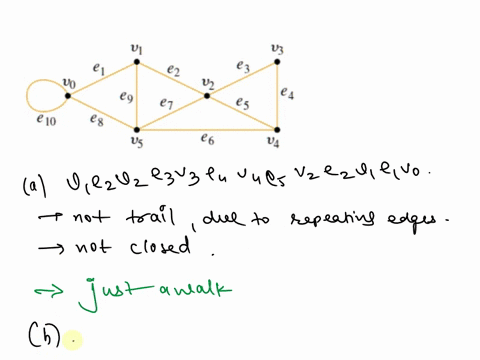 v1 v3
e1 e2 e3
v0 v2
e9 e7 e5 e4
e10 e8
e6
v5 v4
(a) v1e2v2e3v3e4v4e5v2e2v1e1v0.
→ not trail, due to repeating edges.
→ not closed.
⇔ just a walk
(b)